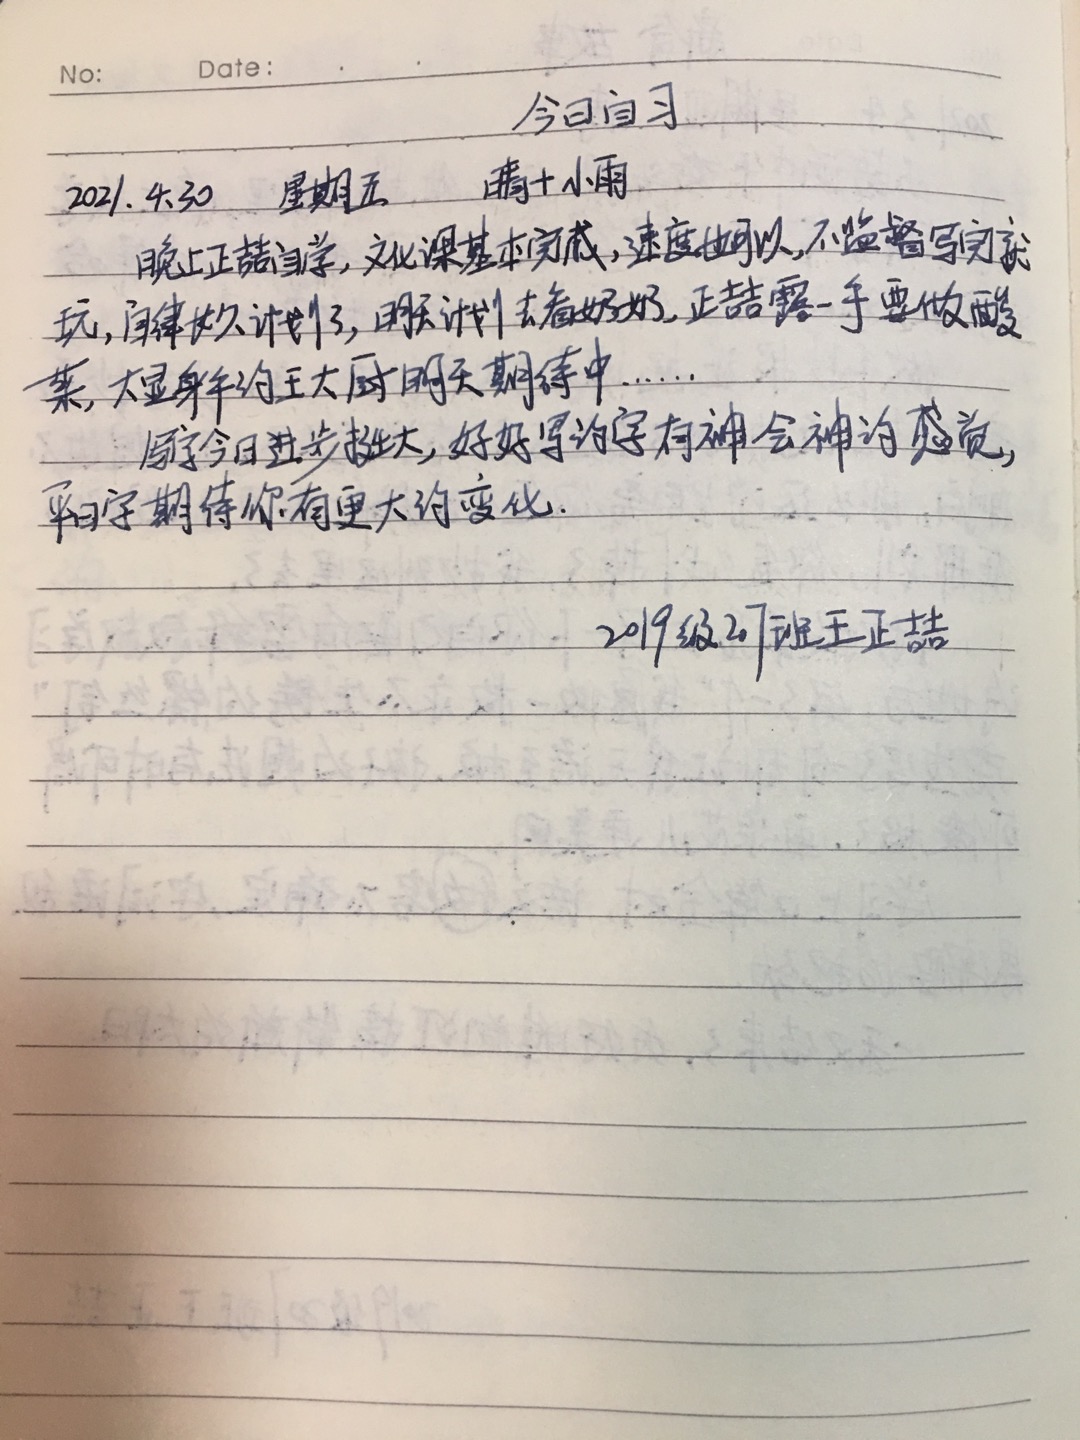 No: Date:
今日自习
2021.4.30 星期五 晴+小雨
晚上正喆自学,文化课基本完成,速度也可以,不监督写完就
玩,自律 计划了,明天计划去看奶奶,正喆露一手要做酸
菜,大显身手的王大厨明天期待中……
写字今日进步挺大,好好写的字有神会神的感觉,
平日字期待你有更大的变化.
2019级 班王正喆